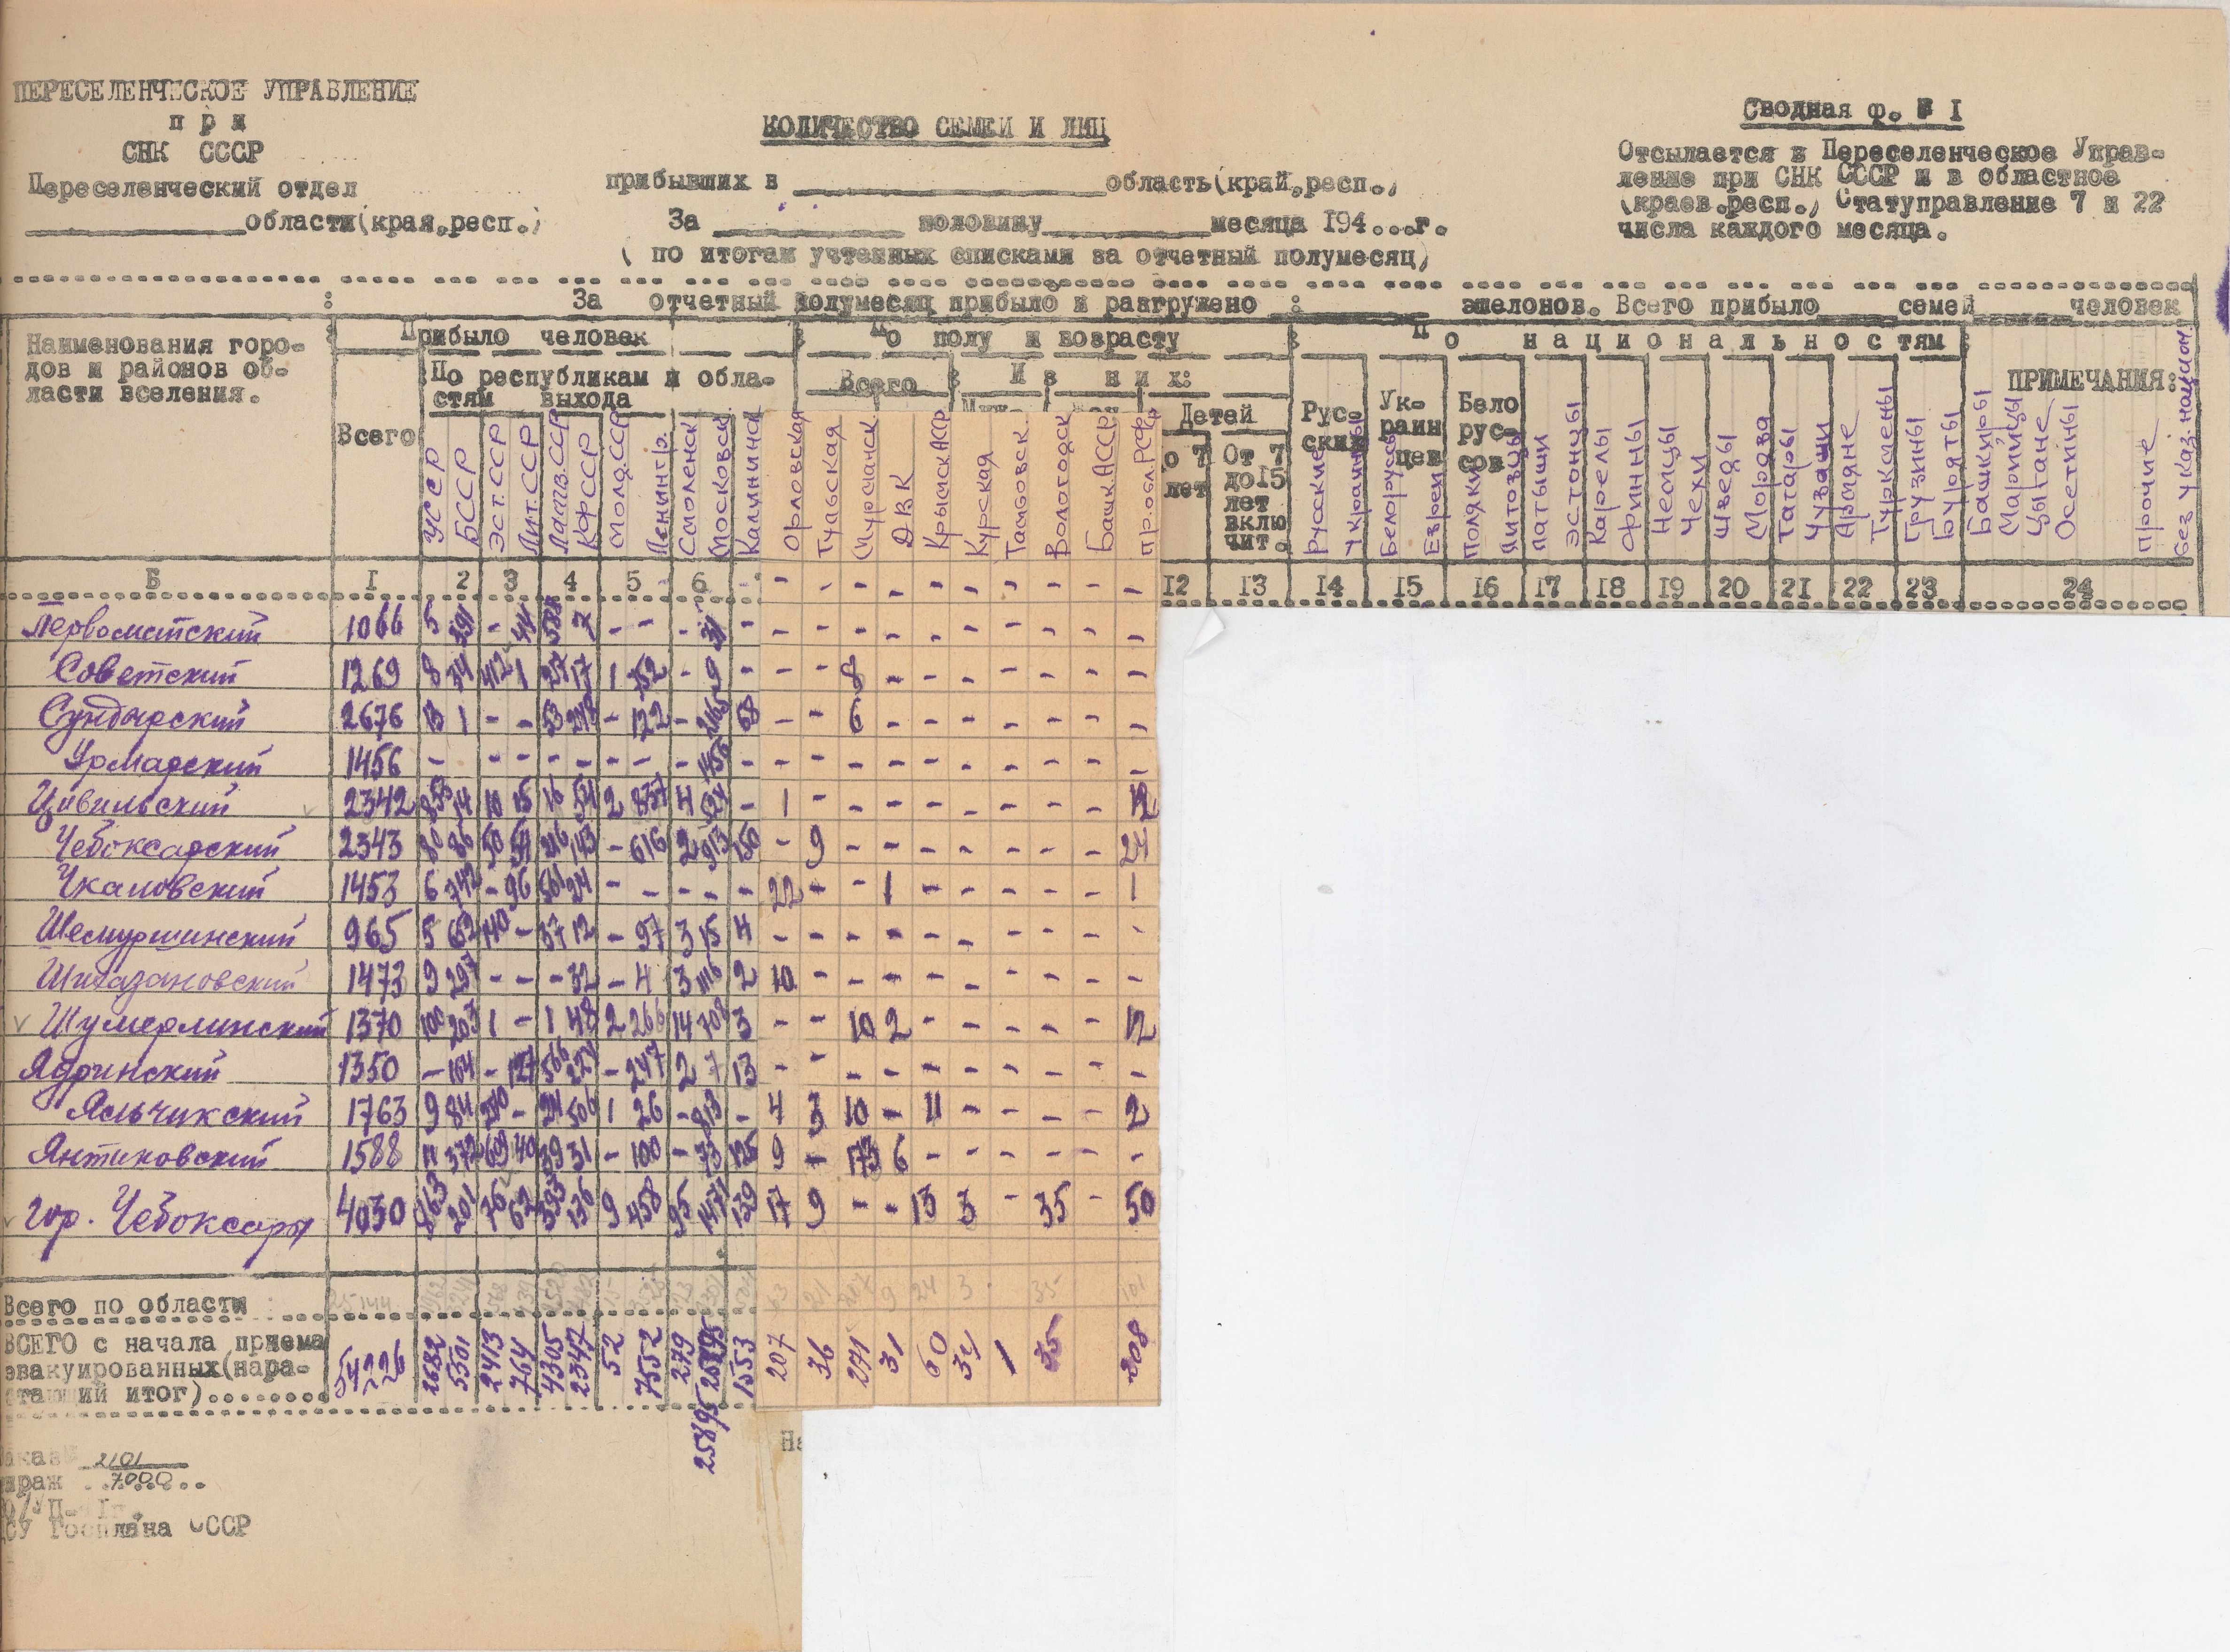 ПЕРЕСЕЛЕНЧЕСКОЕ УПРАВЛЕНИЕ
при
СНК СССР
Переселенческий отдел
области(края,респ.)
КОЛИЧЕСТВО СЕМЕЙ И ЛИЦ
прибывших в область(край,респ.)
За половину месяца 194...г.
( по итогам учтенных списками за отчетный полумесяц)
Сводная ф. № I
Отсылается в Переселенческое Управ-
ление при СНК СССР и в областное
(краев.респ.) Статуправление 7 и 22
числа каждого месяца.
За отчетный полумесяц прибыло и разгружено : эшелонов. Всего прибыло семей человек
Наименования горо-
дов и районов об-
ласти вселения.
Прибыло человек
Всего
По республикам и обла-
стям выхода
По полу и возрасту
Всего
Из них:
Детей
От 7
до 15
лет
вклю
чит.
По национальностям
Рус-
ских
Ук-
раин
цев
Бело
рус-
сов
ПРИМЕЧАНИЯ:
УССР БССР Эст.ССР Лит.ССР Латв.ССР КФССР Молд.ССР Ленингр. Смоленск Московск Калининск Орловская Тульская Мурманск ДВК Крымск АССР Курская Тамбовск. Вологодск Башк.АССР Пр.обл.РСФСР
Русские Украинцы Белоруссы Евреи Поляки Литовцы Латыши Эстонцы Карелы Финны Немцы Чехи Шведы Мордва Татары Чуваши Армяне Туркмены Грузины Буряты Башкиры Марийцы Цыгане Осетины Прочие Без указ. национ.
Б I 2 3 4 5 6 12 13 14 15 16 17 18 19 20 21 22 23 24
Первомайский 1066 5 391 - 44 588 7 - - - 31 - - - - - - - - - - -
Советский 1269 8 34 412 1 17 1 352 - 9 - - - 8 - - - - - - -
Сундырский 2676 13 1 - - 53 - 122 - 68 - - 6 - - - - - - -
Урмарский 1456 - - - - - - - - - 1456 - - - - - - - - - - -
Цивильский 2342 853 14 10 15 16 54 2 837 4 524 - 1 - - - - - - - -
Чебоксарский 2343 80 86 50 54 216 143 - 616 2 913 150 - 9 - - - - - - - 24
Чкаловский 1453 6 742 - 96 561 24 - - - - - 22 - - 1 - - - - - 1
Шемуршинский 965 5 652 140 - 37 12 - 97 3 15 4 - - - - - - - - - -
Шихазановский 1473 9 297 - - - 32 - 4 3 1116 2 10 - - - - - - - - -
Шумерлинский 1370 100 203 1 - 1 48 2 266 14 708 3 - - 10 2 - - - - - 12
Ядринский 1350 - 164 - 127 566 224 - 247 2 7 13 - - - - - - - - - -
Яльчикский 1763 9 84 270 - 24 506 1 26 - 813 - 4 3 10 - 11 - - - - 2
Янтиковский 1588 11 372 669 40 39 31 - 100 - 73 125 9 - 173 6 - - - - - -
гор. Чебоксары 4030 863 201 76 62 393 136 9 458 95 1471 139 17 9 - - 13 3 - 35 - 50
Всего по области 25144 9 24 3 35 101
ВСЕГО с начала приема
эвакуированных(нара-
стающий итог)........
54226 2682 5501 2413 764 4305 2347 52 7552 279 1553 207 36 271 31 60 34 1 35 308
25895
Заказ № 2101
Тираж 7000
ЦСУ Госплана СССР